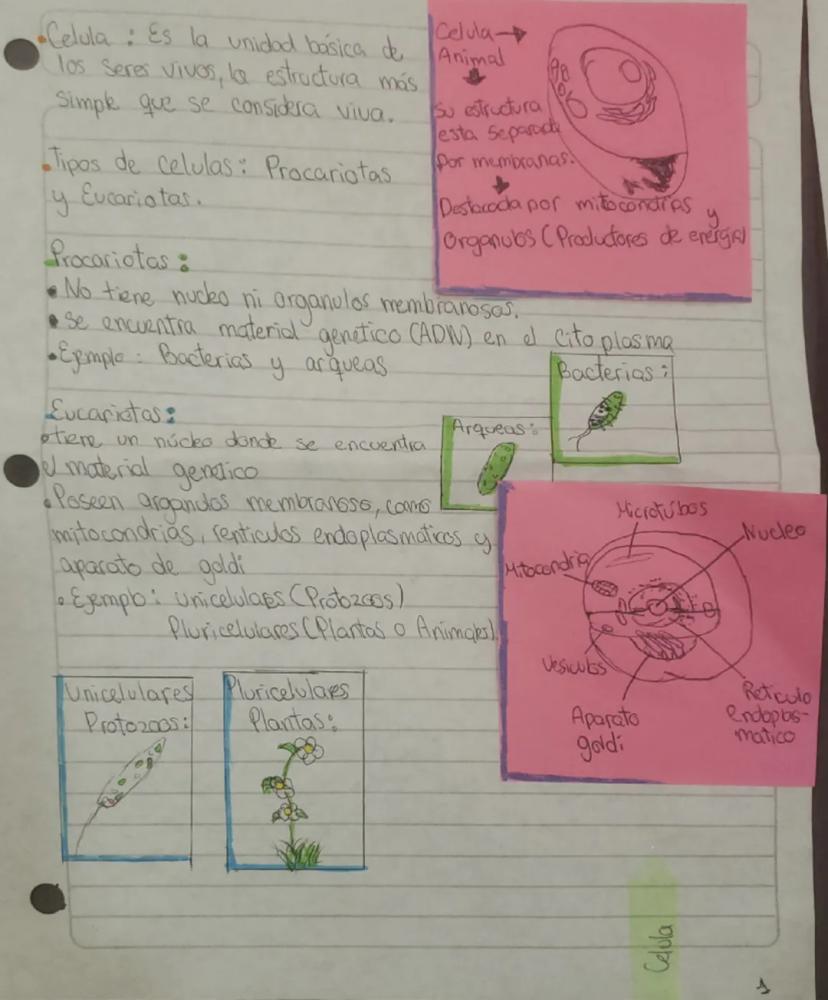 Celula : Es la unidad básica de
los seres vivos, la estructura más
simple que se considera viva.
Tipos de celulas: Procariotas
y Eucariotas.
Celula →
Animal
↓
Su estructura
esta separada
por membranas.
↓
Destacada por mitocondrias y
Organulos (Productores de energia)
Procariotas:
• No tiene nucleo ni organulos membranosos.
• Se encuentra material genetico (ADN) en el citoplasma
• Ejemplo: Bacterias y arqueas
Bacterias:
Arqueas:
Eucariotas:
• tiene un núcleo donde se encuentra
el material genetico
• Poseen organulos membranoso, como
mitocondrias, renticulos endoplasmaticos y
aparato de goldi
• Ejemplo: Unicelulares (Protozoos)
Pluricelulares (Plantas o Animales)
Microtúbos
Nucleo
Mitocondria
Vesiculas
Aparato
goldi
Reticulo
endoplas-
matico
Unicelulares
Protozoos:
Pluricelulares
Plantas:
Celula
1